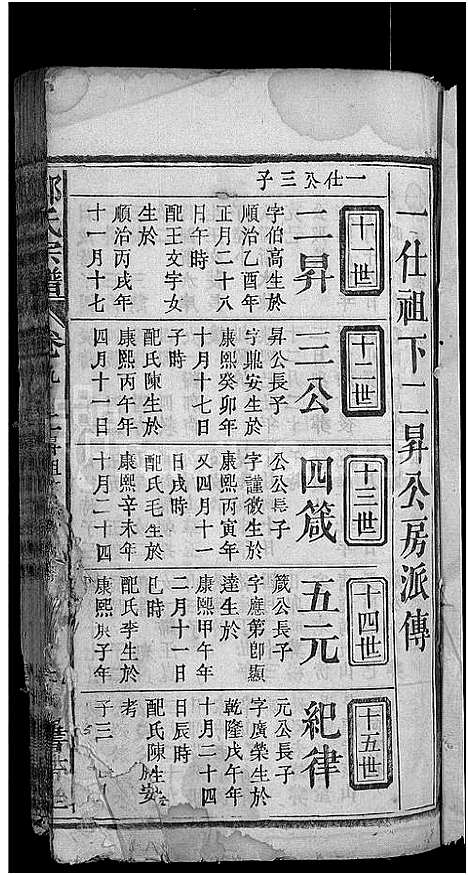 一仕祖下二昇公房派傳
一仕公三子
十一世
二昇
字伯高生於
順治乙酉年
正月二十八
日午時
配王文字女
生於
順治丙戌年
十一月十七
十二世
三公
昇公長子
字鼎安生於
康熙癸卯年
十月十七日
子時
配氏陳生於
康熙丙午年
四月十一日
十三世
四箴
公公長子
字謹微生於
康熙丙寅年
又四月十一
日戌時
配氏毛生於
康熙辛未年
十月二十四
十四世
五元
箴公長子
字應第卽顯
達生於
康熙甲午年
二月十一日
巳時
配氏李生於
康熙庚子年
十五世
紀律
元公長子
字廣榮生於
乾隆戊午年
十月二十四
日辰時
配氏陳生
考
子三
氏宗譜
卷九